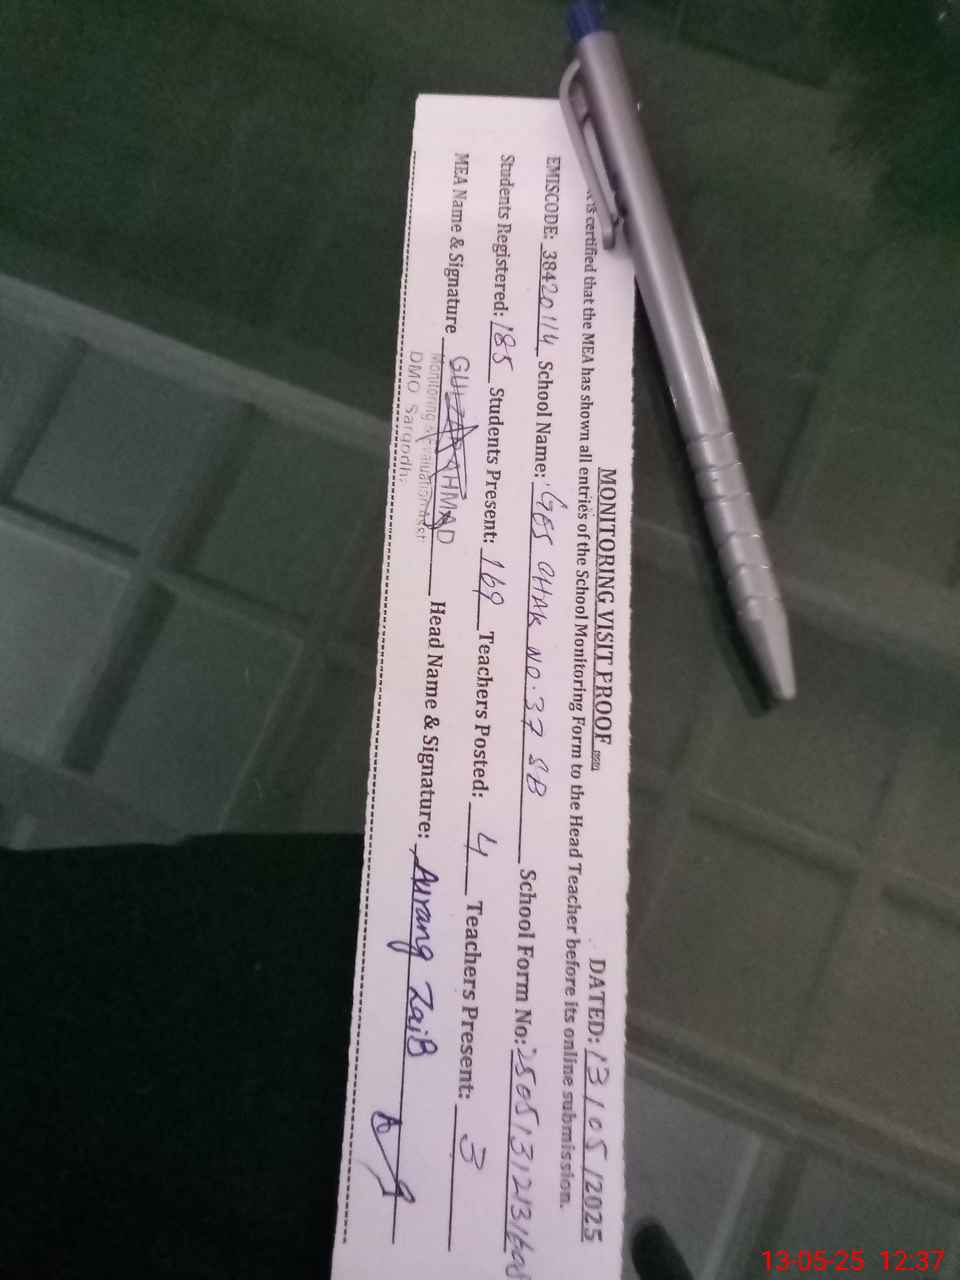 MONITORING VISIT PROOF (PSRP) DATED: 13/05/2025
is certified that the MEA has shown all entries of the School Monitoring Form to the Head Teacher before its online submission.
EMISCODE: 38420114 School Name: GES CHAK NO. 37 SB School Form No:
Students Registered: 185 Students Present: 169 Teachers Posted: 4 Teachers Present: 3
MEA Name & Signature GULZAR AHMAD Head Name & Signature: Aurang ZaiB
Monitoring & Evaluation Asstt
DMO Sargodha
13-05-25 12:37